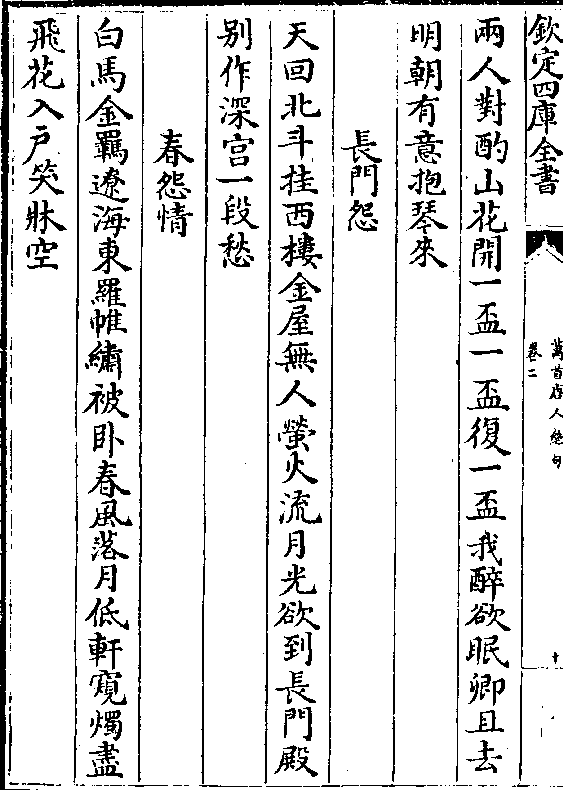 欽定四庫全書
萬首唐人絶句
卷二
十
兩人對酌山花開一盃一盃復一盃我醉欲眠卿且去
明朝有意抱琴來
長門怨
天回北斗挂西樓金屋無人螢火流月光欲到長門殿
别作深宫一段愁
春怨情
白馬金羈遼海東羅帷繡被卧春風落月低軒窺燭盡
飛花入戶笑牀空